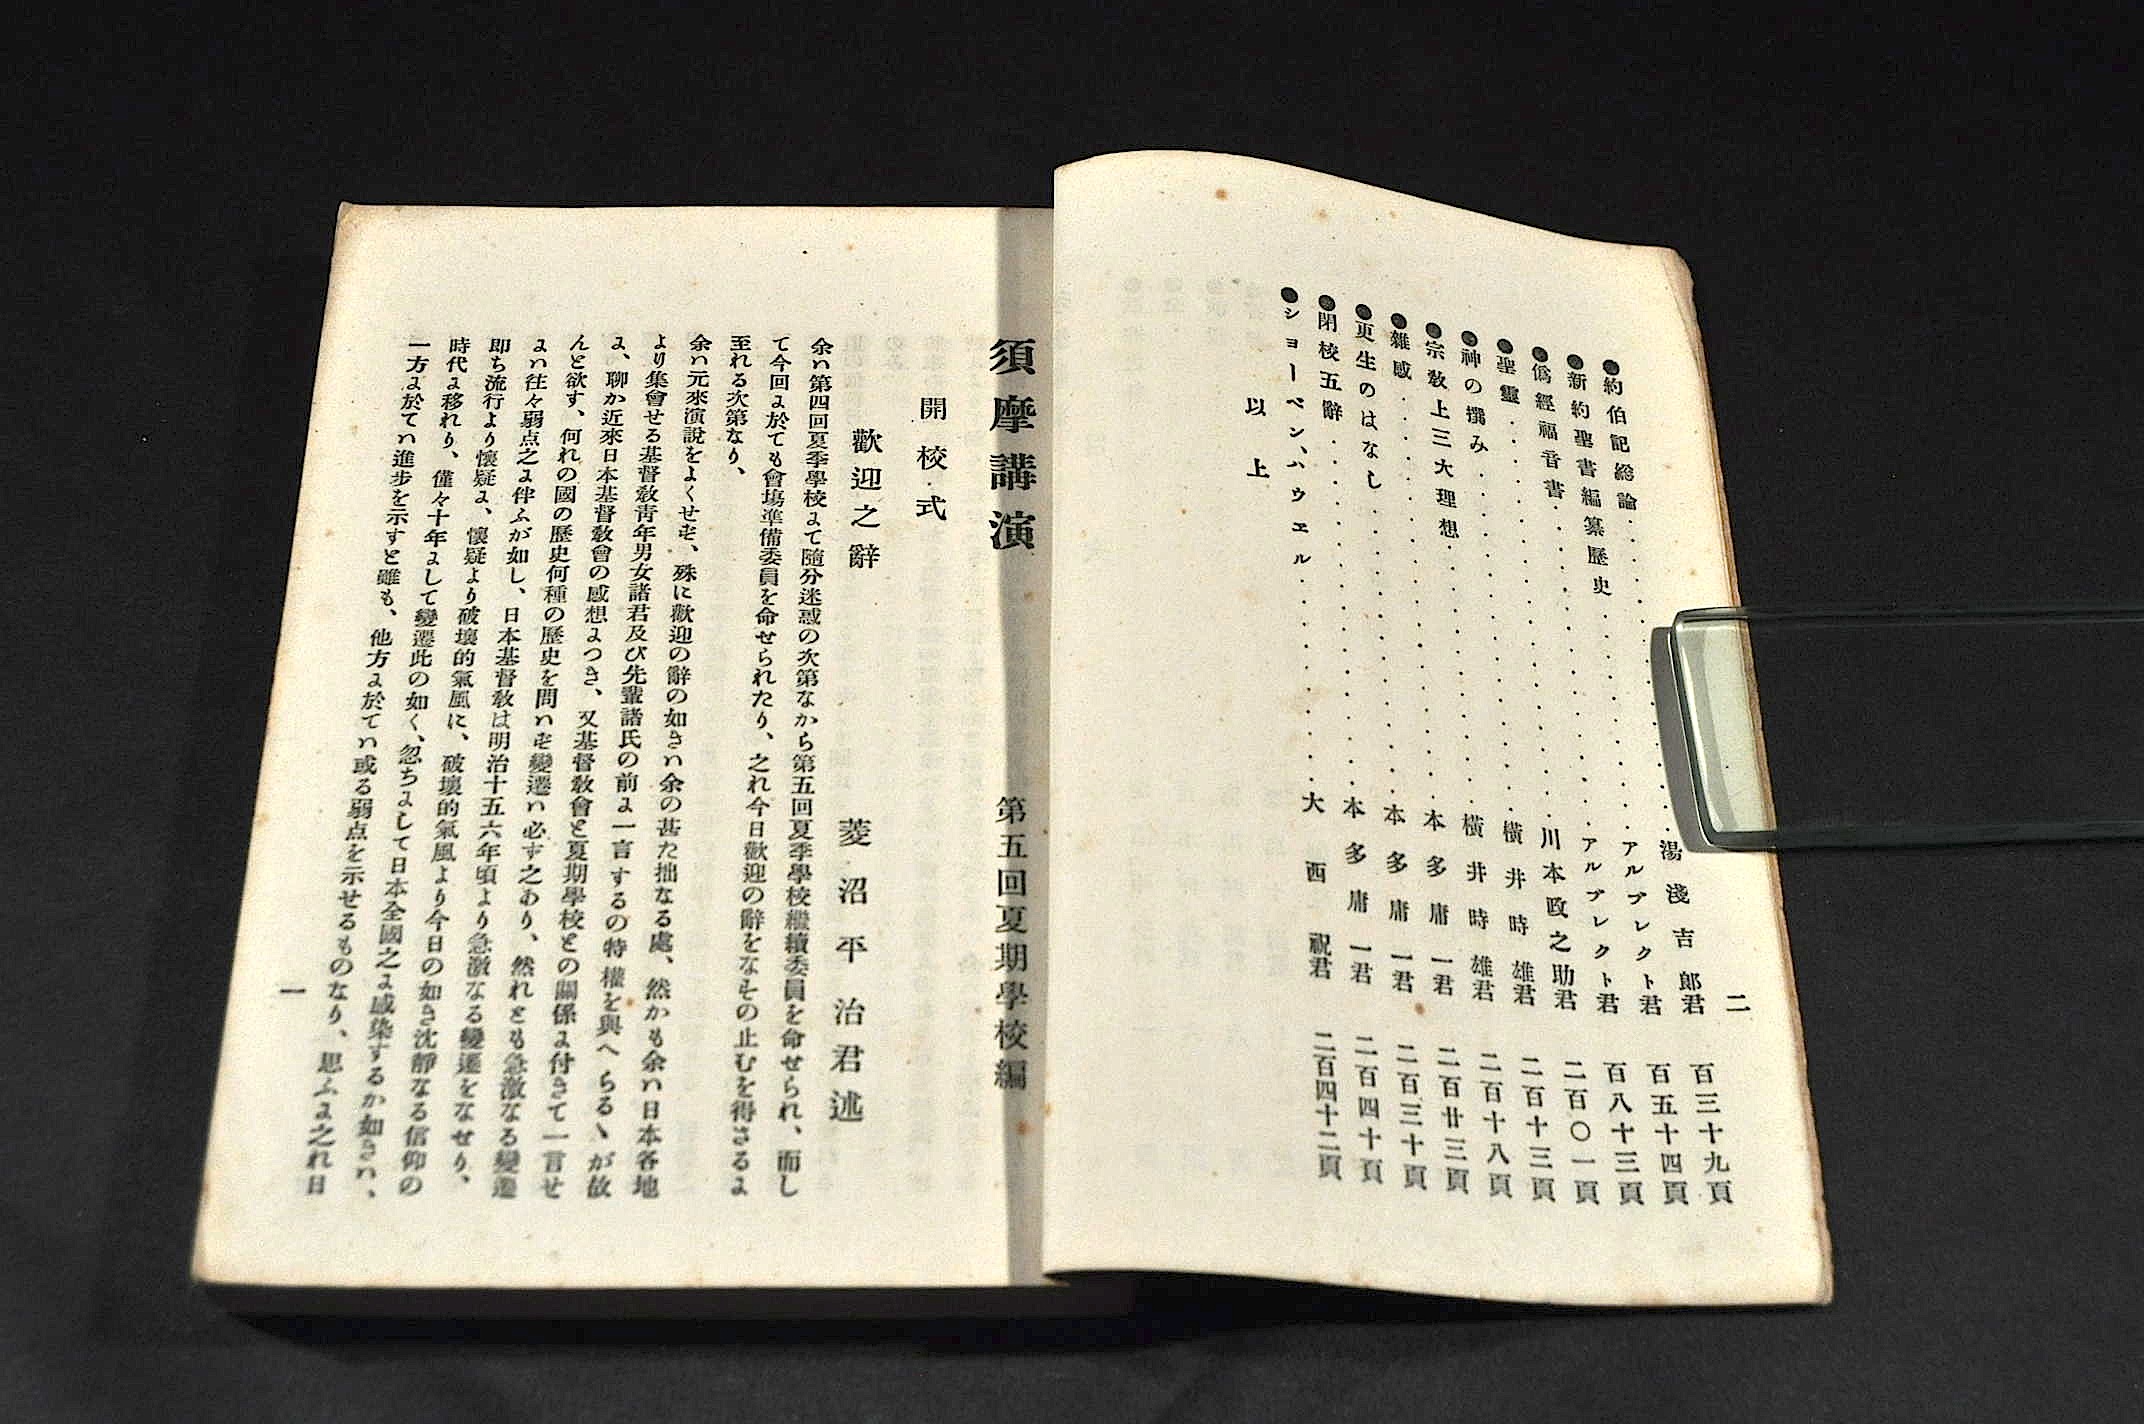 二
●約伯記総論‥‥‥‥‥湯淺吉郎君 百三十九頁
●新約聖書編纂歴史‥‥‥‥‥アルブレクト君 百五十四頁
●僞經福音書‥‥‥‥‥アルブレクト君 百八十三頁
●聖靈‥‥‥‥‥川本政之助君 二百〇一頁
●神の撰み‥‥‥‥‥横井時雄君 二百十三頁
●宗敎上三大理想‥‥‥‥‥横井時雄君 二百十八頁
●雜感‥‥‥‥‥本多庸一君 二百廿三頁
●更生のはなし‥‥‥‥‥本多庸一君 二百三十頁
●閉校五辭‥‥‥‥‥本多庸一君 二百四十頁
●ショーペン、ハウエル‥‥‥‥‥大西祝君 二百四十二頁
以上
須摩講演 第五回夏期學校編
開校式
歡迎之辭
菱沼平治君述
余ハ第四回夏季學校よて隨分迷惑の次第なから第五回夏季學校繼續委員を命せられ、而し
て今回よ於ても會塲準備委員を命せられたり、之れ今日歡迎の辭をなその止むを得さるよ
至れる次第なり、
余ハ元來演說をよくせ𛁈、殊に歡迎の辭の如きハ余の甚た拙なる處、然かも余ハ日本各地
より集會せる基督敎靑年男女諸君及び先輩諸氏の前よ一言するの特權を與へらるゝが故
よ、聊か近來日本基督敎會の感想よつき、又基督敎會と夏期學校との關係よ付きて一言せ
んと欲す、何れの國の歷史何種の歷史を問ハ𛁈變遷ハ必す之あり、然れとも急激なる變遷
よハ往々弱点之よ伴ふが如し、日本基督敎は明治十五六年頃より急激なる變遷をなせり、
即ち流行より懷疑よ、懷疑より破壞的氣風に、破壞的氣風より今日の如き沈靜なる信仰の
時代よ移れり、僅々十年よして變遷此の如く、忽ちよして日本全國之よ感染するか如きハ、
一方よ於てハ進步を示すと雖も、他方よ於てハ或る弱点を示せるものなり、思ふよ之れ日
一